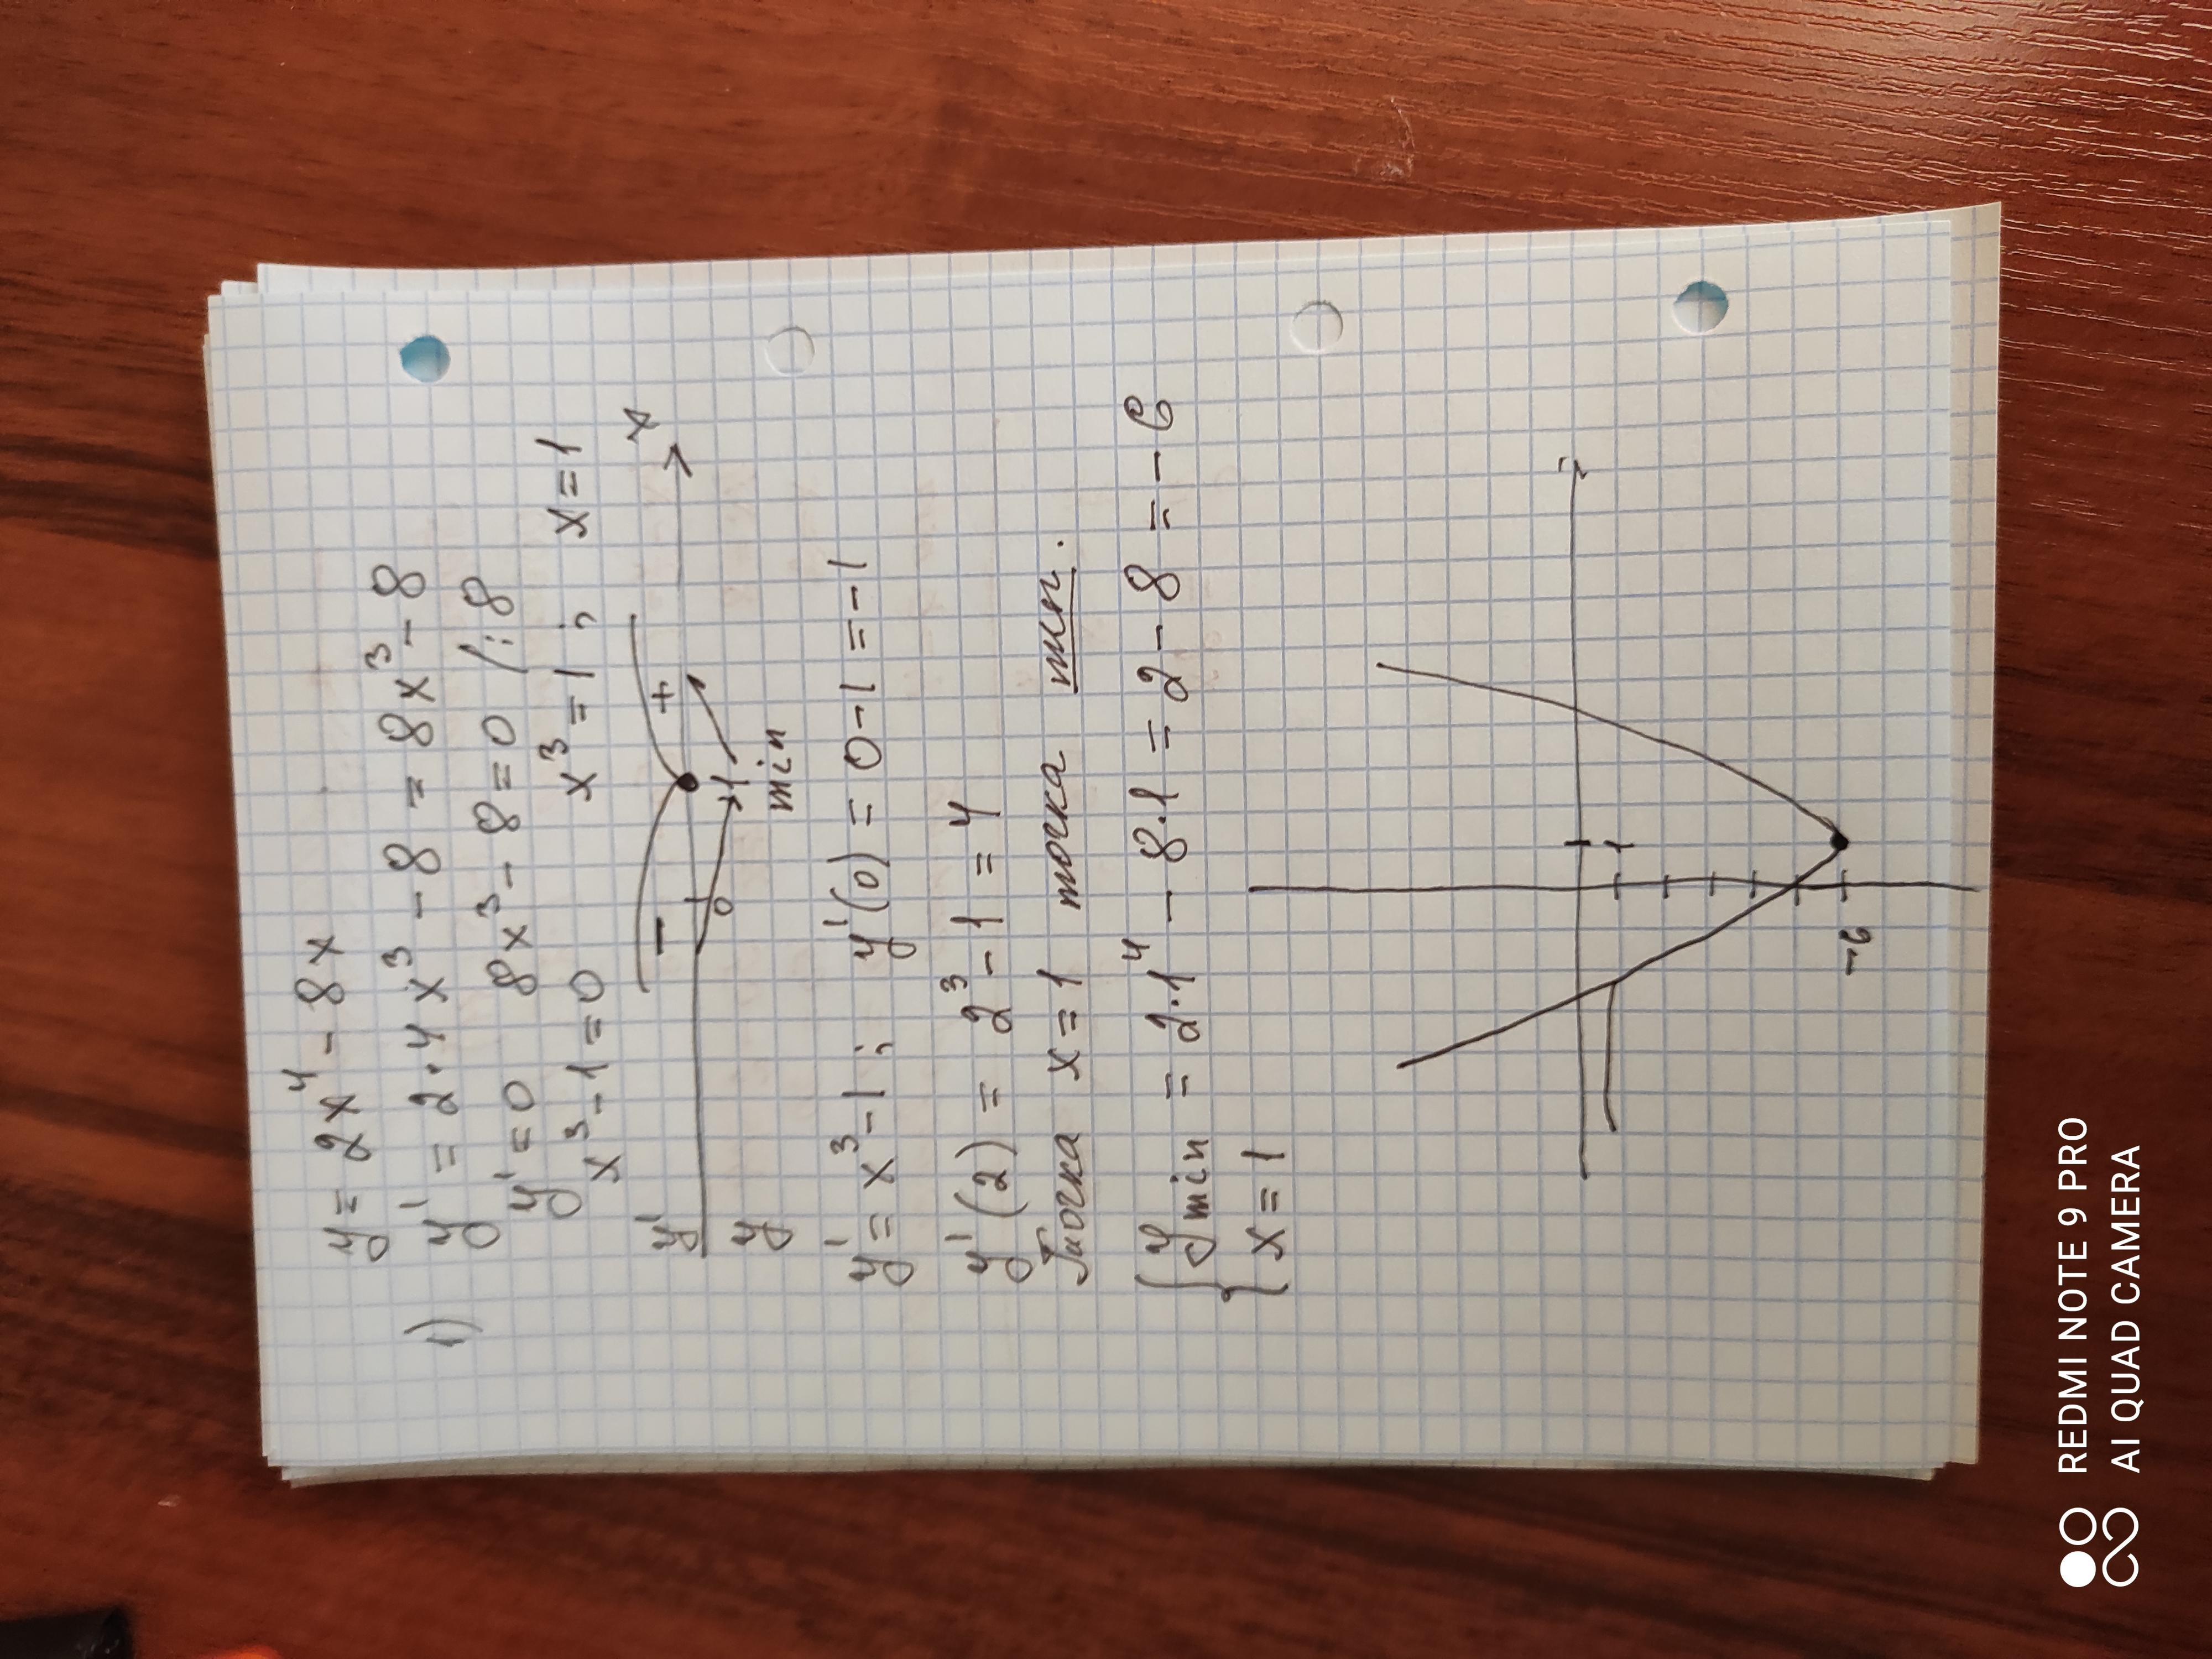 y = 2x⁴ - 8x
1) y' = 2·4x³ - 8 = 8x³ - 8
y' = 0 8x³ - 8 = 0 /:8
x³ - 1 = 0 x³ = 1; x = 1
y' - + x
0 1
y min
y' = x³ - 1; y'(0) = 0 - 1 = -1
y'(2) = 2³ - 1 = 4
Точка x = 1 точка мин.
{ y min = 2·1⁴ - 8·1 = 2 - 8 = -6
{ x = 1
1
-6
REDMI NOTE 9 PRO
AI QUAD CAMERA